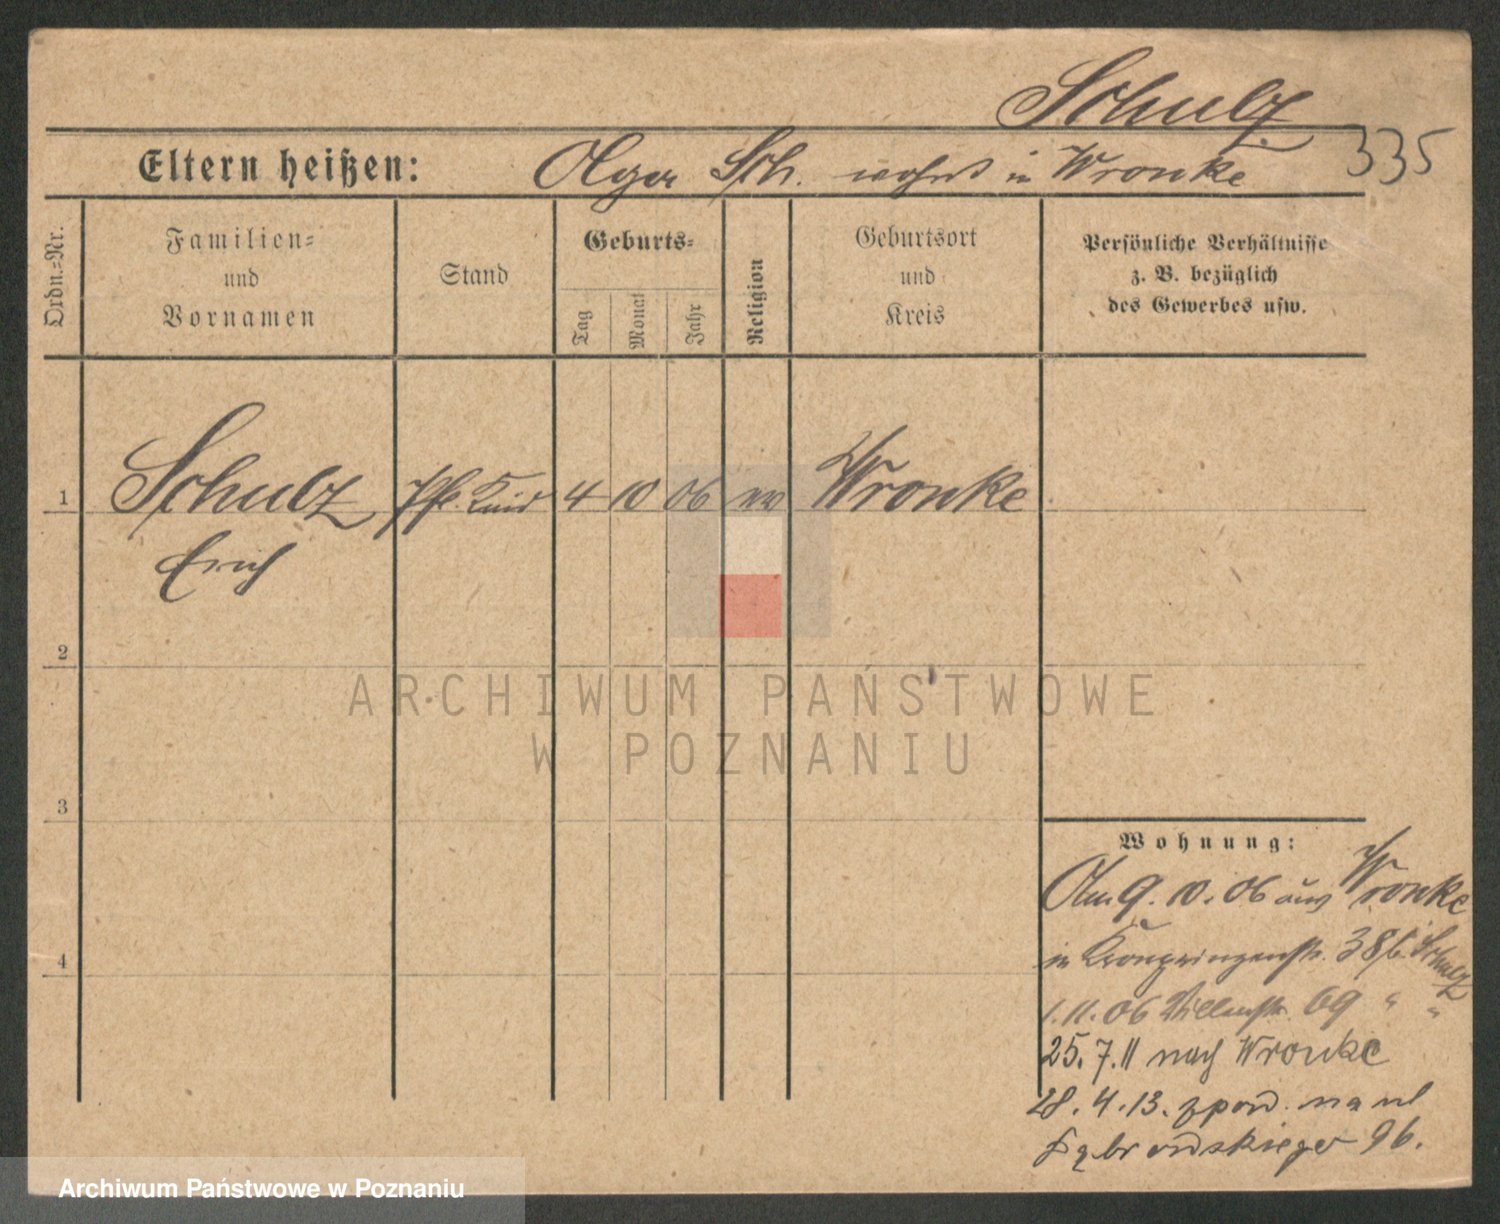 Schulz
335
Eltern heißen: Olga Sch. wohnt in Wronke
Ordn.=Nr.
Familien=
und
Vornamen
Stand
Geburts=
Tag
Monat
Jahr
Religion
Geburtsort
und
Kreis
Persönliche Verhältnisse
z. B. bezüglich
des Gewerbes usw.
1 Schulz Pfl. Kind 4 10 06 ev Wronke
Erich
2
3
4
Wohnung:
Am 9. 10. 06 aus Wronke
in Kronprinzenstr. 38 b. Schulz
1. 11. 06 Villenstr. 69 " "
25. 7. 11 nach Wronke
28. 4. 13. na ul
Dąbrowskiego 96.
ARCHIWUM PAŃSTWOWE
W POZNANIU
Archiwum Państwowe w Poznaniu